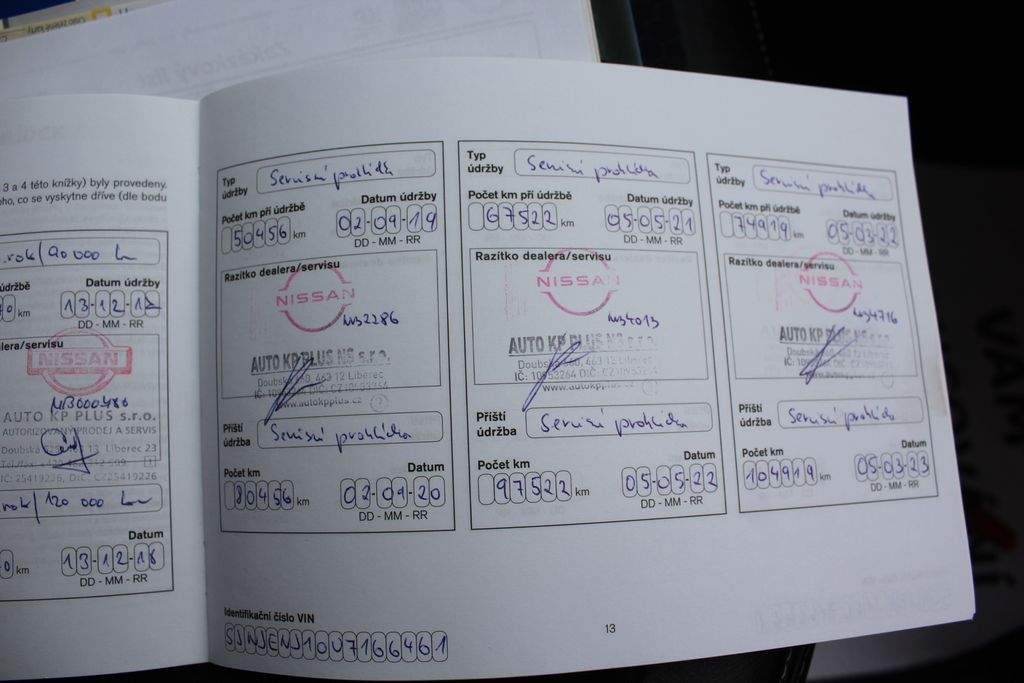 Zakázkový list
3 a 4 této knížky) byly provedeny.
oho, co se vyskytne dříve (dle bodu
rok/90 000 km
údržbě Datum údržby
0 km 13-12-1
DD - MM - RR
alera/servisu
NISSAN
AUTO KP PLUS s.r.o.
AUTORIZOVANÝ PRODEJ A SERVIS
Liberec 23
IČ: 25419226, DIČ: CZ25419226
rok/120 000 km
Datum
0 km 13-12-18
DD - MM - RR
Typ údržby Servisní prohlídka
Počet km při údržbě Datum údržby
50456 km 02-09-19
DD - MM - RR
Razítko dealera/servisu
NISSAN
W32286
AUTO KP PLUS NS s.r.o.
Doubská 463 12 Liberec
IČ: 10953264 DIČ: CZ10953264
www.autokpplus.cz
Příští údržba Servisní prohlídka
Počet km Datum
80456 km 02-09-20
DD - MM - RR
Typ údržby Servisní prohlídka
Počet km při údržbě Datum údržby
67522 km 05-05-21
DD - MM - RR
Razítko dealera/servisu
NISSAN
W34013
AUTO KP PLUS NS s.r.o.
Doubská 463 12 Liberec
IČ: 10953264 DIČ: CZ
www.autokpplus.cz
Příští údržba Servisní prohlídka
Počet km Datum
97522 km 05-05-22
DD - MM - RR
Typ údržby Servisní prohlídka
Počet km při údržbě Datum údržby
74919 km 05-03-22
DD - MM - RR
Razítko dealera/servisu
NISSAN
W34716
AUTO KP PLUS NS s.r.o.
Příští údržba Servisní prohlídka
Počet km Datum
104919 km 05-03-23
DD - MM - RR
Identifikační číslo VIN
SJNJENJ10U7166461
13